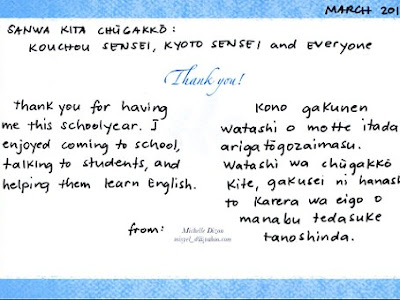 MARCH 201
SANWA KITA CHŪGAKKŌ:
KOUCHOU SENSEI, KYOTO SENSEI and EVERYONE
Thank you!
Thank you for having
me this schoolyear. I
enjoyed coming to school,
talking to students, and
helping them learn English.
Kono gakunen
watashi o motte itada
arigatōgozaimasu.
Watashi wa chūgakkō
kite, gakusei ni hanash
to karera wa eigo o
manabu tedasuke
tanoshinda.
from:
Michelle Dizon